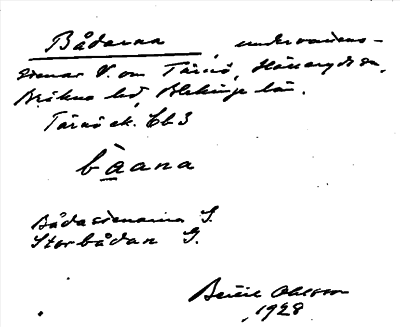 Bådarna, undervattens-
stenar V. om Tärnö, Hällaryds sn,
Bräkne hd, Blekinge län.
Tärnö ek. Cb3
bàana
Bådastenarna S.
Storbådan G.
Bertil Ohlsson
1928